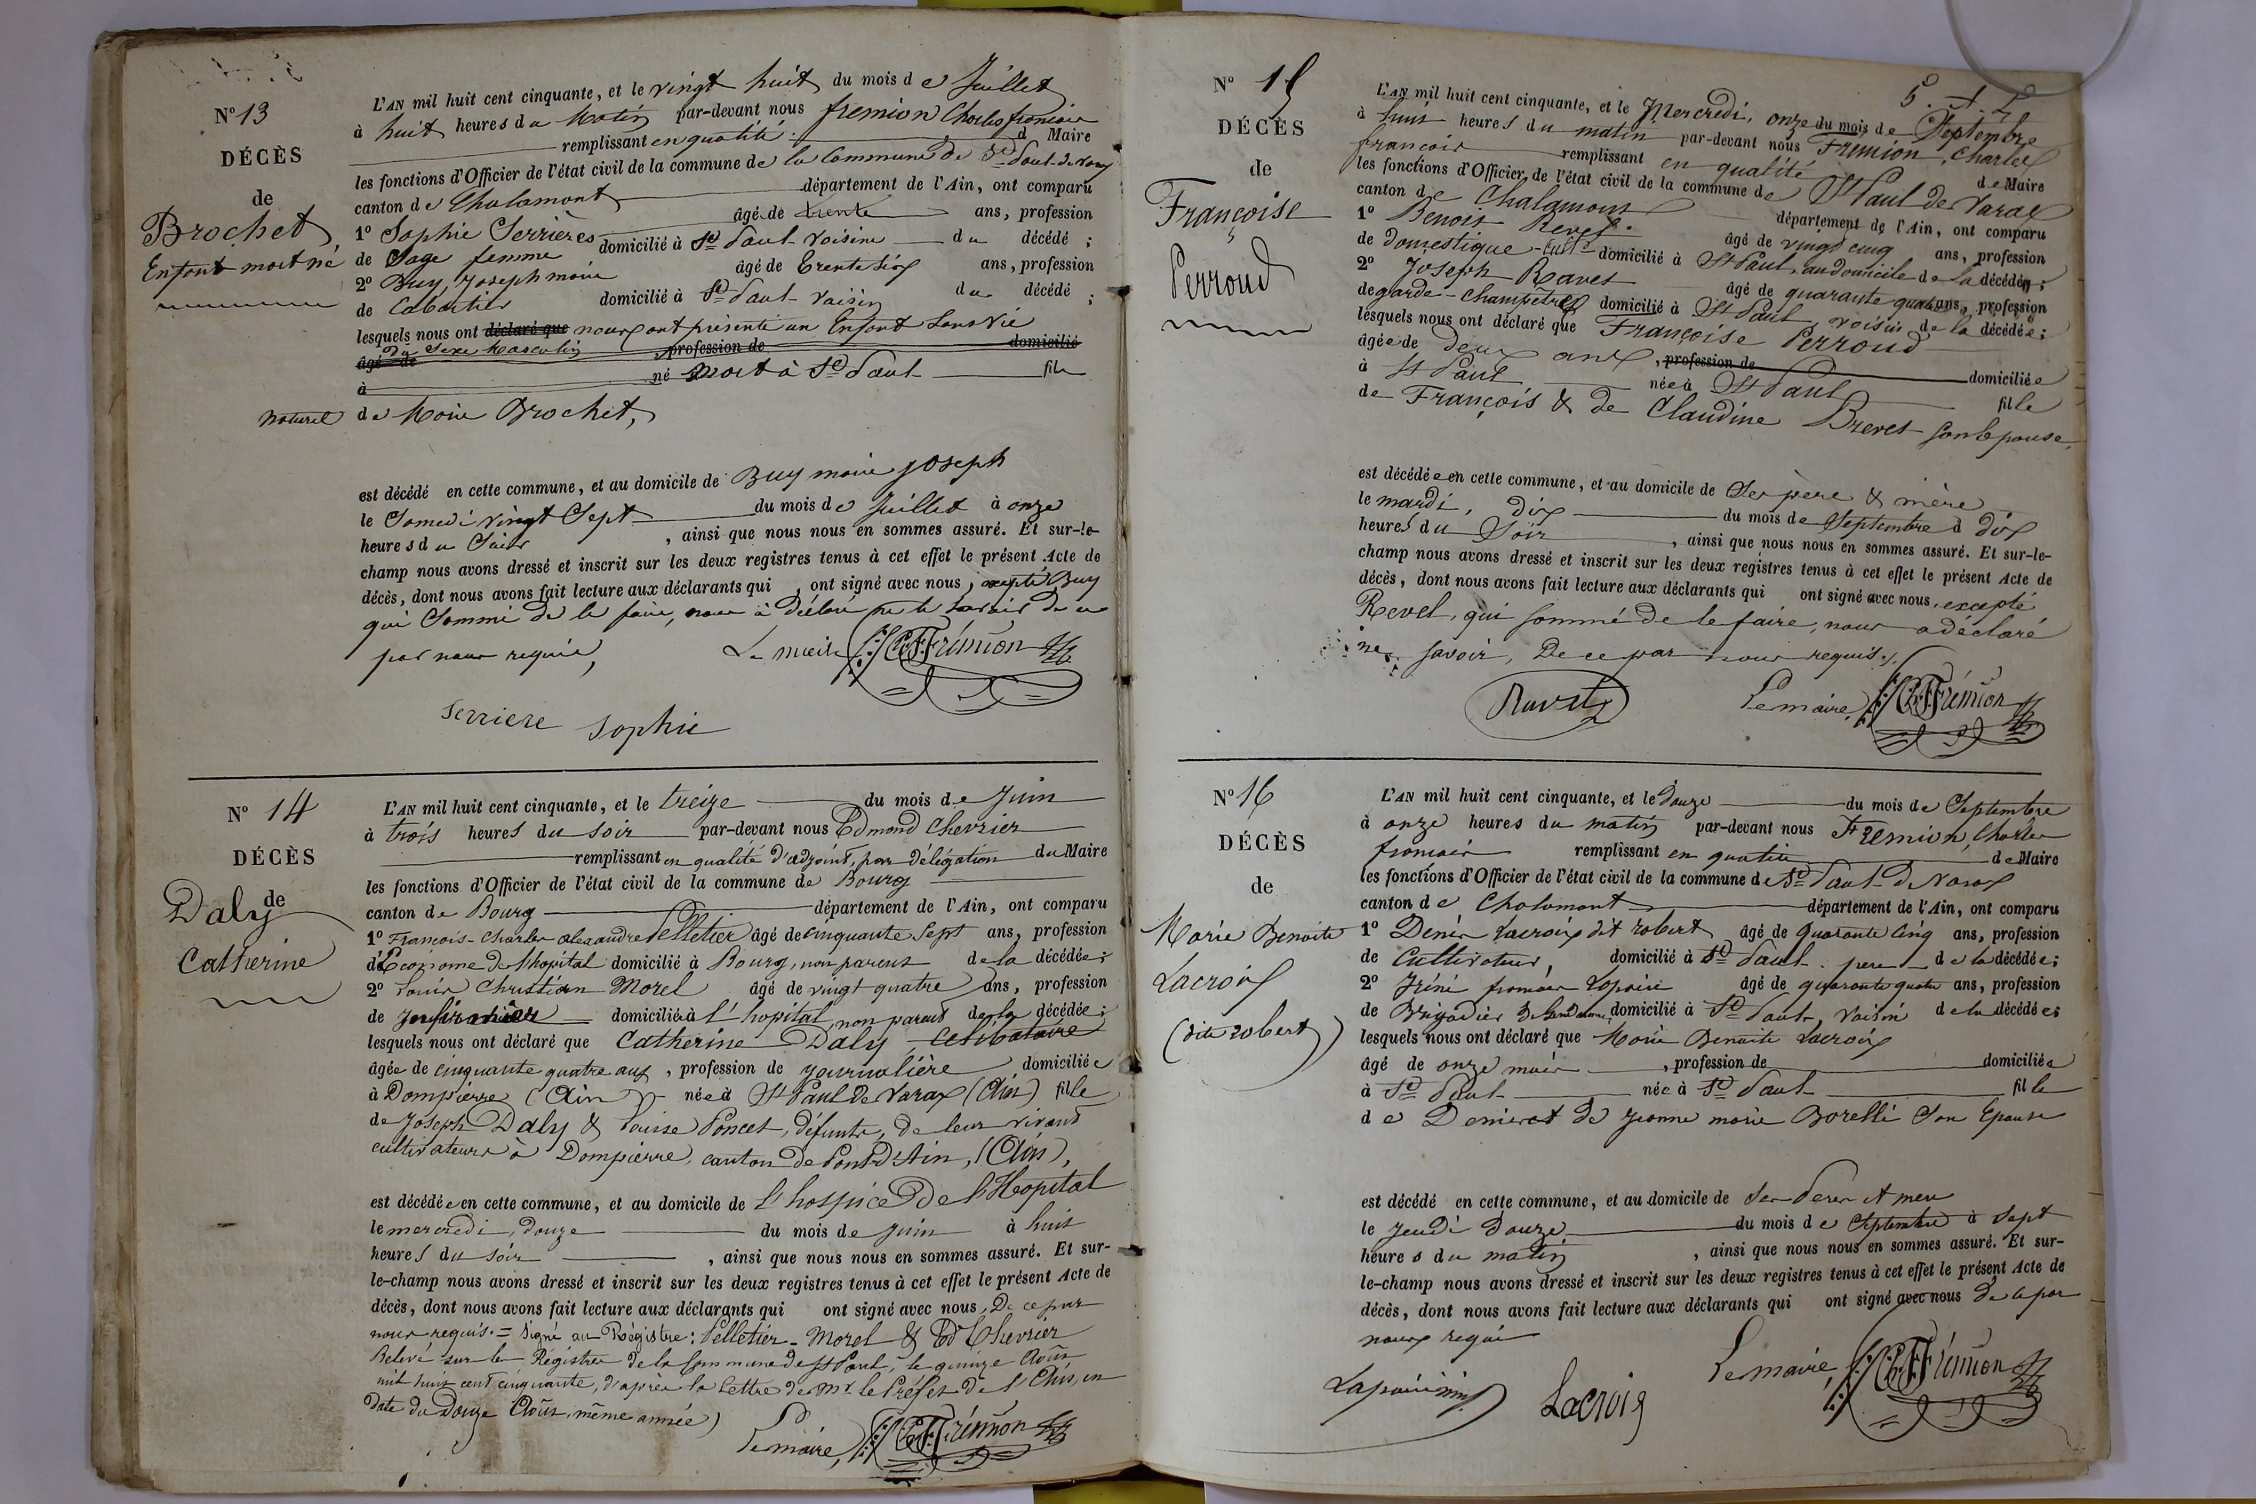 N° 13
DÉCÈS
de
Brochet
Enfant mort né
L'AN mil huit cent cinquante, et le vingt huit du mois de Juillet
à huit heures du Matin par-devant nous fremion Charles françois
remplissant en qualité de Maire
les fonctions d'Officier de l'état civil de la commune de la Commune de St Paul de Varax
canton de Chalamont département de l'Ain, ont comparu
1° Sophie Serrières âgé de trente ans, profession
de Sage femme domicilié à St Paul voisine du décédé ;
2° Buy, Joseph marie âgé de trente six ans, profession
de Cabartier domicilié à St Paul voisin du décédé ;
lesquels nous ont déclaré que nous ont présenté un Enfant Sans Vie
du Sexe Masculin
âgé de profession de domicilié
à né mort à St Paul fils
naturel de Marie Brochet,
est décédé en cette commune, et au domicile de Buy marie joseph
le Samedi vingt Sept du mois de Juillet à onze
heures du Soir , ainsi que nous nous en sommes assuré. Et sur-le-
champ nous avons dressé et inscrit sur les deux registres tenus à cet effet le présent Acte de
décès, dont nous avons fait lecture aux déclarants qui ont signé avec nous, excepté Buy
qui Sommé de le faire, nous à déclaré ne le savoir de ce
par nous requis,
Le maire, Frémion
Serriere Sophie
N° 14
DÉCÈS
de
Daly
Catherine
L'AN mil huit cent cinquante, et le treize du mois de Juin
à trois heures du soir par-devant nous Edmond Chevrier
remplissant en qualité d'adjoint, par délégation du Maire
les fonctions d'Officier de l'état civil de la commune de Bourg
canton de Bourg département de l'Ain, ont comparu
1° François-Charles alexandre Pelletier âgé de cinquante sept ans, profession
d'Econome de l'hopital domicilié à Bourg, non parent de la décédée ;
2° Louis Christian Morel âgé de vingt quatre ans, profession
de Infirmier domicilié à l'hopital, non parent de la décédée ;
lesquels nous ont déclaré que Catherine Daly Célibataire
âgée de cinquante quatre ans, profession de journalière domiciliée
à Dompierre (Ain) née à St Paul de Varax (Ain) fille
de Joseph Daly & Louise Poncet, défunts, de leur vivant
cultivateurs à Dompierre, canton de Pont-d'Ain, (Ain),
est décédée en cette commune, et au domicile de l'hospice de l'Hopital
le mercredi, douze du mois de juin à huit
heures du soir , ainsi que nous nous en sommes assuré. Et sur-
le-champ nous avons dressé et inscrit sur les deux registres tenus à cet effet le présent Acte de
décès, dont nous avons fait lecture aux déclarants qui ont signé avec nous, De ce par
nous requis. = Signé au Régistre : Pelletier - Morel & Ed Chevrier
Relevé sur le Régistre de la Commune de St Paul, le quinze Août
mil huit cent cinquante, d'après la lettre de Mr le Préfet de l'Ain, en
date du Douze Août, même année)
Le maire, Frémion
N° 15
DÉCÈS
de
Françoise
Perroud
L'AN mil huit cent cinquante, et le Mercredi, onze du mois de Septembre
à huit heures du matin par-devant nous Frémion, Charles
françois remplissant en qualité de Maire
les fonctions d'Officier de l'état civil de la commune de St Paul de Varax
canton de Chalamont département de l'Ain, ont comparu
1° Benoit Revel âgé de vingt cinq ans, profession
de domestique-cult. domicilié à St Paul, au domicile de la décédée ;
2° Joseph Ravet âgé de quarante quatre ans, profession
de garde-champêtre domicilié à St Paul voisin de la décédée ;
lesquels nous ont déclaré que Françoise Perroud
âgée de deux ans, profession de domiciliée
à St Paul née à St Paul fille
de François & de Claudine Brevet son épouse
est décédée en cette commune, et au domicile de Ses père & mère
le mardi, dix du mois de Septembre à dix
heures du Soir , ainsi que nous nous en sommes assuré. Et sur-le-
champ nous avons dressé et inscrit sur les deux registres tenus à cet effet le présent Acte de
décès, dont nous avons fait lecture aux déclarants qui ont signé avec nous, excepté
Revel, qui sommé de le faire, nous a déclaré
ne savoir, De ce par nous requis.
Ravet Le maire, Frémion
N° 16
DÉCÈS
de
Marie Benoite
Lacroix
(dite robert)
L'AN mil huit cent cinquante, et le douze du mois de Septembre
à onze heures du matin par-devant nous Fremion, Charles
françois remplissant en qualité de Maire
les fonctions d'Officier de l'état civil de la commune de St Paul de Varax
canton de Chalamont département de l'Ain, ont comparu
1° Denis Lacroix dit robert âgé de quarante cinq ans, profession
de Cultivateur, domicilié à St Paul. pere de la décédée ;
2° françois âgé de quarante quatre ans, profession
de Brigadier domicilié à St Paul, voisin de la décédée ;
lesquels nous ont déclaré que Marie Benoite Lacroix
âgé de onze mois , profession de domiciliée
à St Paul née à St Paul fille
de Denis et de jeanne marie Borelli Son Epouse
est décédé en cette commune, et au domicile de Ses Peres et mere
le jeudi douze du mois de Septembre à sept
heures du matin , ainsi que nous nous en sommes assuré. Et sur-
le-champ nous avons dressé et inscrit sur les deux registres tenus à cet effet le présent Acte de
décès, dont nous avons fait lecture aux déclarants qui ont signé avec nous de ce par
nous requis
Lacroix Le maire, Frémion